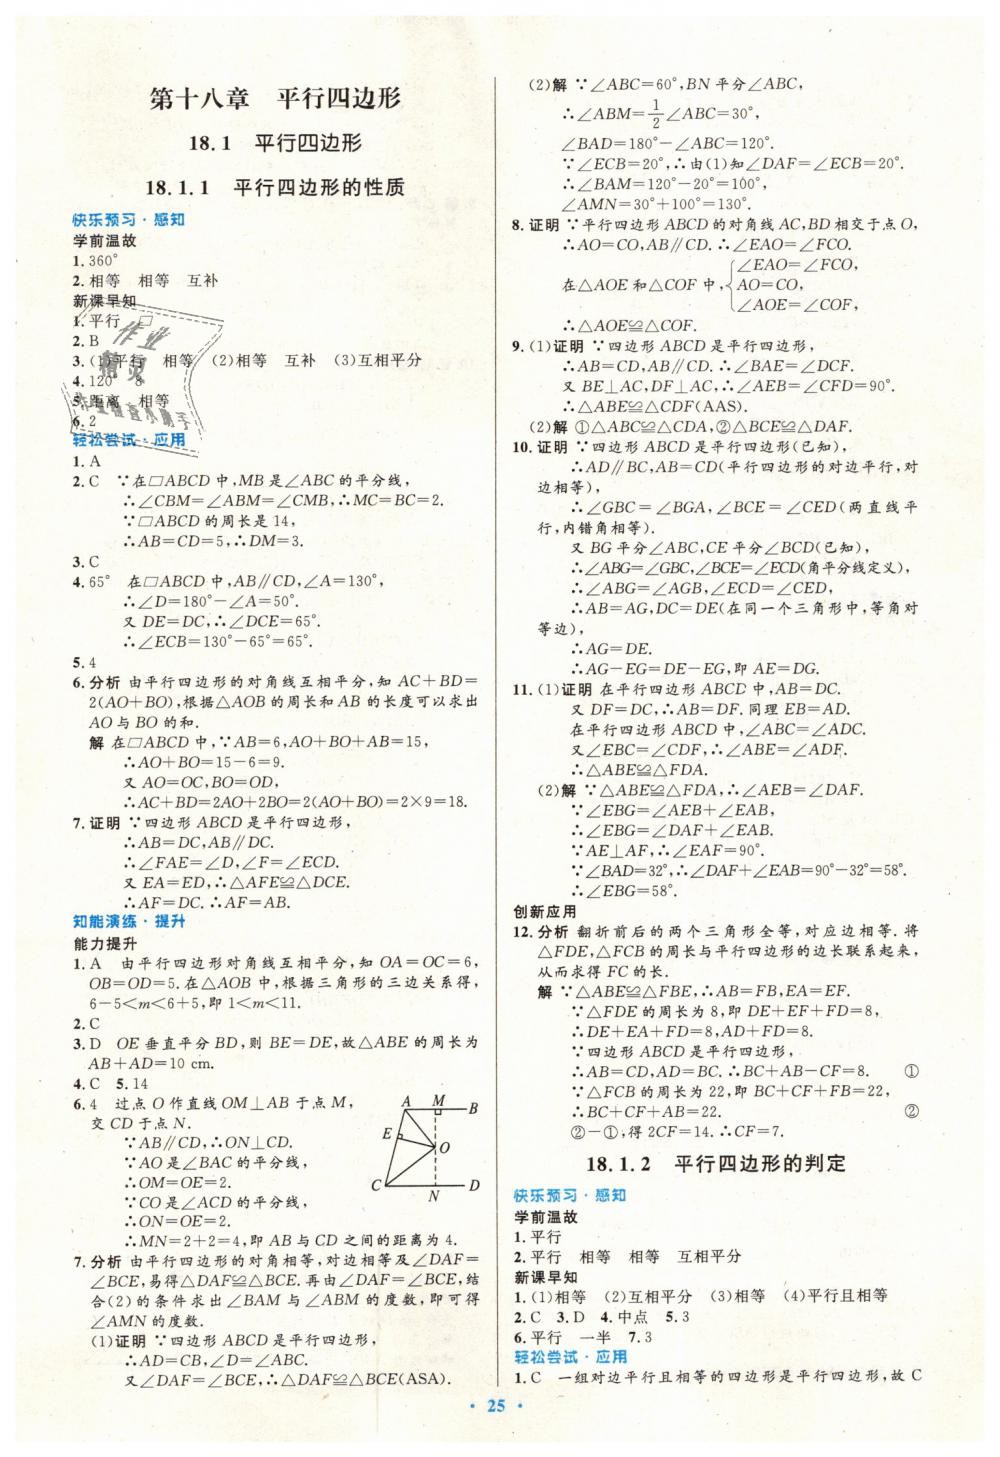 第十八章 平行四边形
18.1 平行四边形
18.1.1 平行四边形的性质
快乐预习·感知
学前温故
1.360°
2.相等 相等 互补
新课早知
1.平行 □
2.B
3.(1)平行 相等 (2)相等 互补 (3)互相平分
4.120° 8
5.距离 相等
6.2
作业
精灵
轻松尝试·应用
1.A
2.C ∵在□ABCD中,MB是∠ABC的平分线,
∴∠CBM=∠ABM=∠CMB,∴MC=BC=2.
∵□ABCD的周长是14,
∴AB=CD=5,∴DM=3.
3.C
4.65° 在□ABCD中,AB∥CD,∠A=130°,
∴∠D=180°-∠A=50°.
又DE=DC,∴∠DCE=65°.
∴∠ECB=130°-65°=65°.
5.4
6.分析 由平行四边形的对角线互相平分,知AC+BD=
2(AO+BO),根据△AOB的周长和AB的长度可以求出
AO与BO的和.
解 在□ABCD中,∵AB=6,AO+BO+AB=15,
∴AO+BO=15-6=9.
又AO=OC,BO=OD,
∴AC+BD=2AO+2BO=2(AO+BO)=2×9=18.
7.证明 ∵四边形ABCD是平行四边形,
∴AB=DC,AB∥DC.
∴∠FAE=∠D,∠F=∠ECD.
又EA=ED,∴△AFE≌△DCE.
∴AF=DC.∴AF=AB.
知能演练·提升
能力提升
1.A 由平行四边形对角线互相平分,知OA=OC=6,
OB=OD=5.在△AOB中,根据三角形的三边关系得,
6-5<m<6+5,即1<m<11.
2.C
3.D OE垂直平分BD,则BE=DE,故△ABE的周长为
AB+AD=10 cm.
4.C 5.14
6.4 过点O作直线OM⊥AB于点M,
交CD于点N.
∵AB∥CD,∴ON⊥CD.
∵AO是∠BAC的平分线,
∴OM=OE=2.
∵CO是∠ACD的平分线,
∴ON=OE=2.
∴MN=2+2=4,即AB与CD之间的距离为4.
A M B
E
O
C N D
7.分析 由平行四边形的对角相等,对边相等及∠DAF=
∠BCE,易得△DAF≌△BCE.再由∠DAF=∠BCE,结
合(2)的条件求出∠BAM与∠ABM的度数,即可得
∠AMN的度数.
(1)证明 ∵四边形ABCD是平行四边形,
∴AD=CB,∠D=∠ABC.
又∠DAF=∠BCE,∴△DAF≌△BCE(ASA).
(2)解 ∵∠ABC=60°,BN平分∠ABC,
∴∠ABM=1/2∠ABC=30°,
∠BAD=180°-∠ABC=120°.
∵∠ECB=20°,∴由(1)知∠DAF=∠ECB=20°.
∴∠BAM=120°-20°=100°,
∠AMN=30°+100°=130°.
8.证明 ∵平行四边形ABCD的对角线AC,BD相交于点O,
∴AO=CO,AB∥CD.∴∠EAO=∠FCO.
∠EAO=∠FCO,
在△AOE和△COF中,{AO=CO,
∠AOE=∠COF,
∴△AOE≌△COF.
9.(1)证明 ∵四边形ABCD是平行四边形,
∴AB=CD,AB∥CD.∴∠BAE=∠DCF.
又BE⊥AC,DF⊥AC,∴∠AEB=∠CFD=90°.
∴△ABE≌△CDF(AAS).
(2)解 ①△ABC≌△CDA,②△BCE≌△DAF.
10.证明 ∵四边形ABCD是平行四边形(已知),
∴AD∥BC,AB=CD(平行四边形的对边平行,对
边相等),
∴∠GBC=∠BGA,∠BCE=∠CED(两直线平
行,内错角相等).
又BG平分∠ABC,CE平分∠BCD(已知),
∴∠ABG=∠GBC,∠BCE=∠ECD(角平分线定义),
∴∠ABG=∠AGB,∠ECD=∠CED,
∴AB=AG,DC=DE(在同一个三角形中,等角对
等边),
∴AG=DE.
∴AG-EG=DE-EG,即AE=DG.
11.(1)证明 在平行四边形ABCD中,AB=DC.
又DF=DC,∴AB=DF.同理EB=AD.
在平行四边形ABCD中,∠ABC=∠ADC.
又∠EBC=∠CDF,∴∠ABE=∠ADF.
∴△ABE≌△FDA.
(2)解 ∵△ABE≌△FDA,∴∠AEB=∠DAF.
∵∠EBG=∠AEB+∠EAB,
∴∠EBG=∠DAF+∠EAB.
∵AE⊥AF,∴∠EAF=90°.
∵∠BAD=32°,∴∠DAF+∠EAB=90°-32°=58°.
∴∠EBG=58°.
创新应用
12.分析 翻折前后的两个三角形全等,对应边相等.将
△FDE,△FCB的周长与平行四边形的边长联系起来,
从而求得FC的长.
解 ∵△ABE≌△FBE,∴AB=FB,EA=EF.
∵△FDE的周长为8,即DE+EF+FD=8,
∴DE+EA+FD=8,AD+FD=8.
∵四边形ABCD是平行四边形,
∴AB=CD,AD=BC.∴BC+AB-CF=8. ①
∵△FCB的周长为22,即BC+CF+FB=22,
∴BC+CF+AB=22. ②
②-①,得2CF=14.∴CF=7.
18.1.2 平行四边形的判定
快乐预习·感知
学前温故
1.平行
2.平行 相等 相等 互相平分
新课早知
1.(1)相等 (2)互相平分 (3)相等 (4)平行且相等
2.C 3.D 4.中点 5.3
6.平行 一半 7.3
轻松尝试·应用
1.C 一组对边平行且相等的四边形是平行四边形,故C
·25·